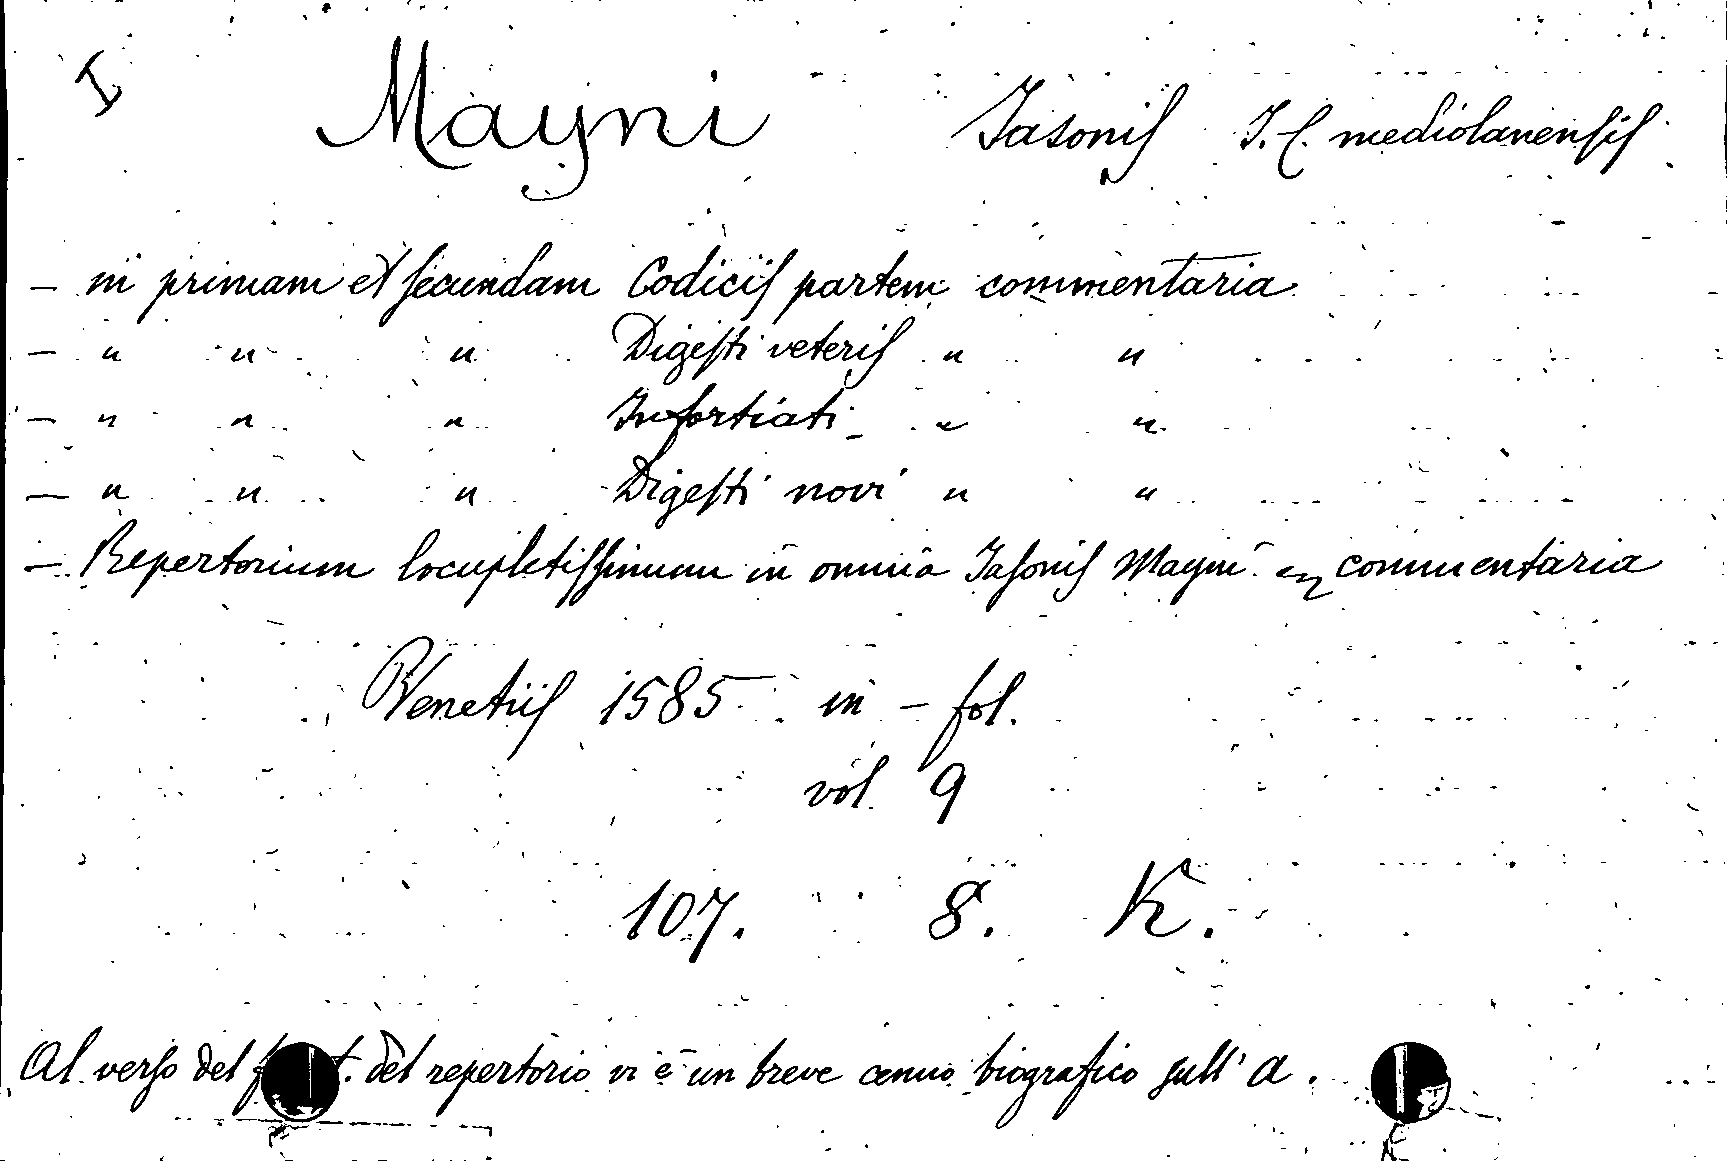 I Mayni Jasonis J. C. mediolanensis
– in primam et secundam Codicis partem commentaria
– " " " Digesti veteris " "
– " " " Infortiati " "
– " " " Digesti novi " "
– Repertorium locupletissimum in omnia Jasonis Mayni commentaria
Venetiis 1585 in - fol.
vol. 9
107. 8. K.
Al verso del del repertorio vi è un breve cenno biografico sull' A.